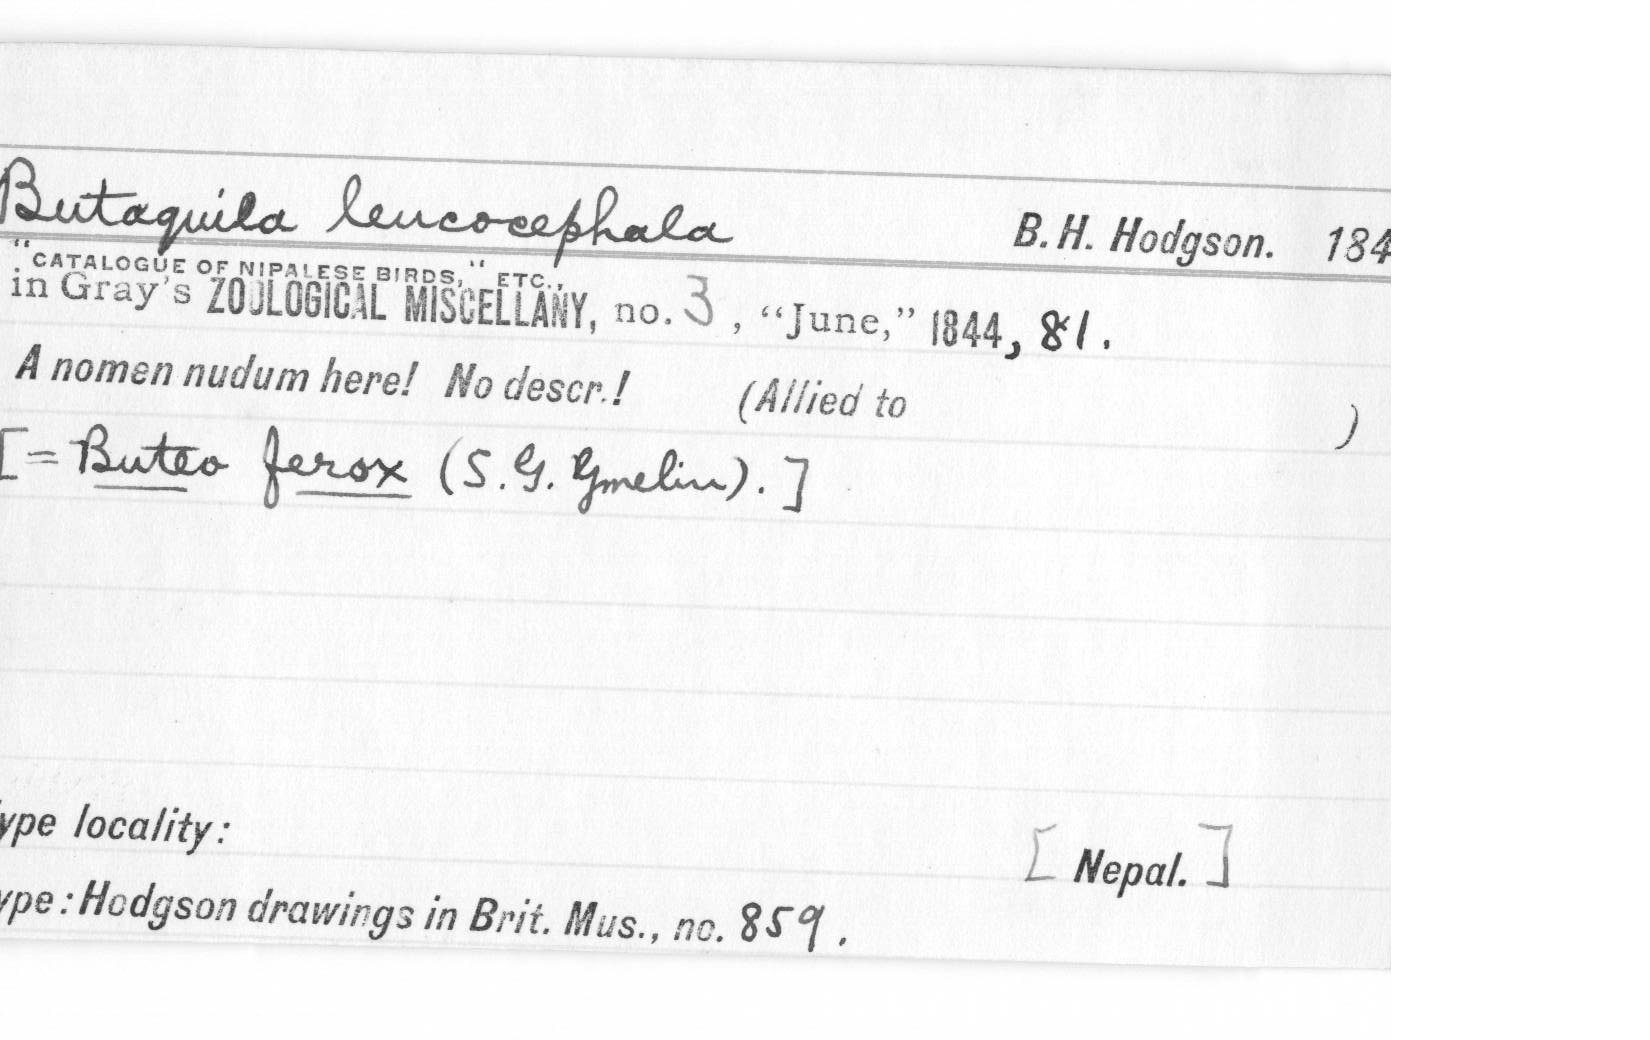 Butaquila leucocephala B. H. Hodgson. 184
"CATALOGUE OF NIPALESE BIRDS," ETC.,
in Gray's ZOOLOGICAL MISCELLANY, no. 3, "June," 1844, 81.
A nomen nudum here! No descr.! (Allied to )
[= Buteo ferox (S. G. Gmelin).]
ype locality: [Nepal.]
ype: Hodgson drawings in Brit. Mus., no. 859.